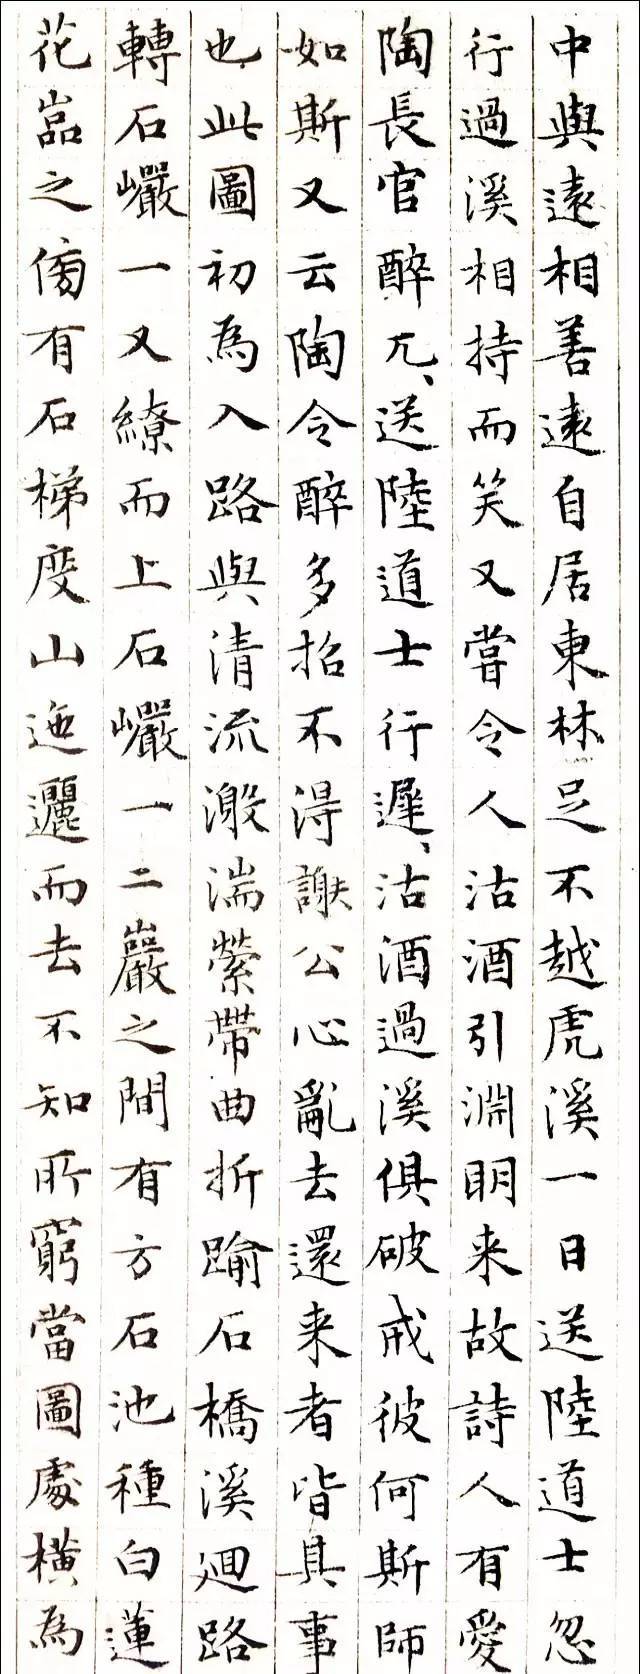 中與遠相善遠自居東林足不越虎溪一日送陸道士忽
行過溪相持而笑又嘗令人沽酒引淵明来故詩人有愛
陶長官醉兀、送陸道士行遲、沽酒過溪俱破戒彼何斯師
如斯又云陶令醉多招不得謝公心亂去還来者皆其事
也此圖初為入路與清流激湍縈帶曲折踰石橋溪迴路
轉石巖一又繚而上石巖一二巖之間有方石池種白蓮
花嵓之傍有石梯度山迤邐而去不知所窮當圖處橫為